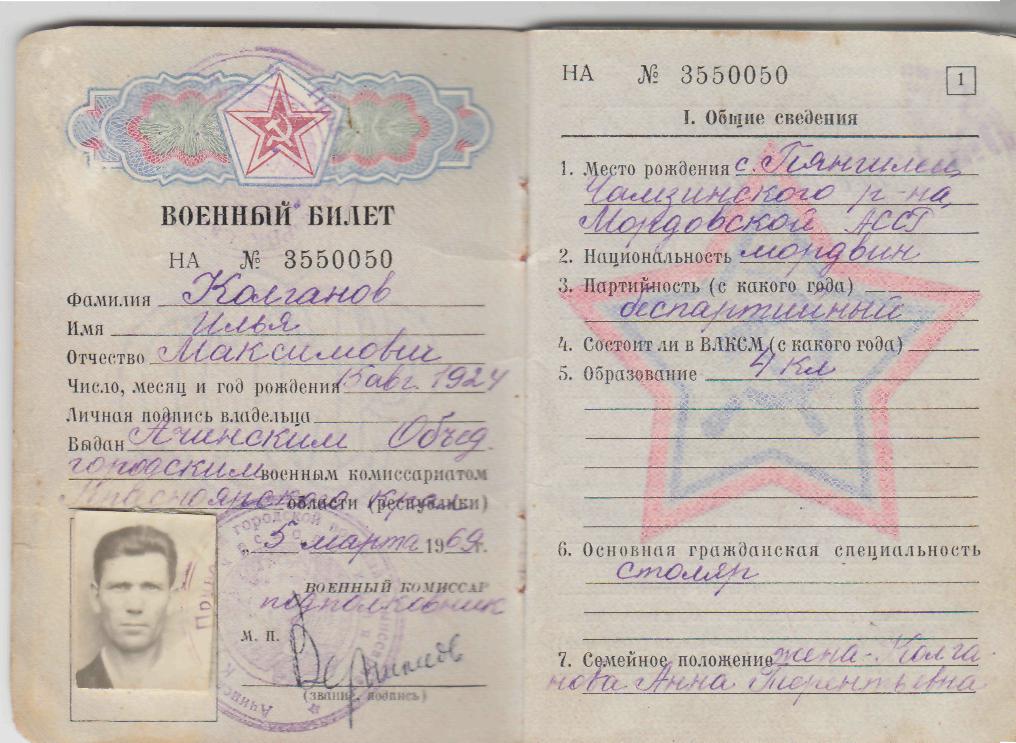 ВОЕННЫЙ БИЛЕТ
НА № 3550050
Фамилия Колганов
Имя Илья
Отчество Максимович
Число, месяц и год рождения 15 авг. 1924
Личная подпись владельца
Выдан Ачинским Объед.
городским военным комиссариатом
Красноярского края области (республики)
„5 марта 1969г.
ВОЕННЫЙ КОМИССАР
подполковник
М. П.
(звание, подпись)
НА № 3550050
1
I. Общие сведения
1. Место рождения с. Пянгилеи
Чамзинского р-на
Мордовской АССР
2. Национальность мордвин
3. Партийность (с какого года)
беспартийный
4. Состоит ли в ВЛКСМ (с какого года)
5. Образование 4 кл
6. Основная гражданская специальность
столяр
7. Семейное положение жена-Колга
нова Анна Терентьевна